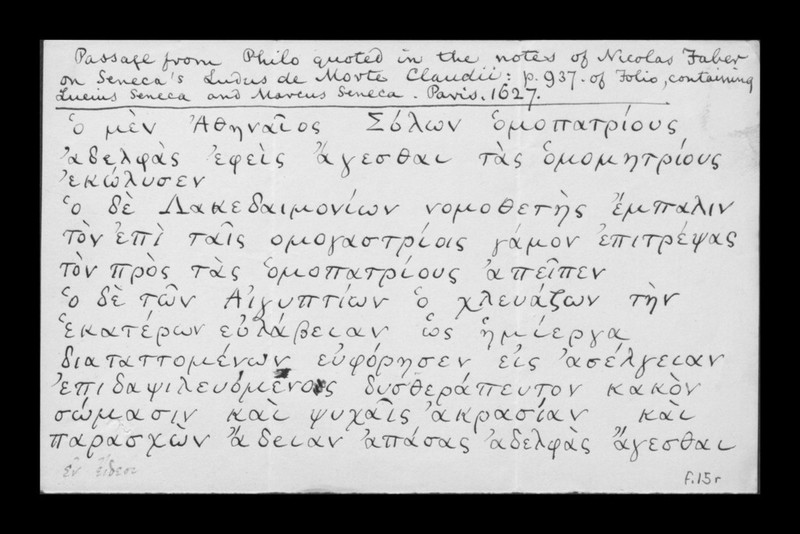 Passage from Philo quoted in the notes of Nicolas Faber
on Seneca's Ludus de Morte Claudii: p. 937. of Folio, containing
Lucius Seneca and Marcus Seneca. Paris. 1627.
ὁ μὲν Ἀθηναῖος Σόλων ὁμοπατρίους
ἀδελφὰς ἐφεὶς ἄγεσθαι τὰς ὁμομητρίους
ἐκώλυσεν
ὁ δὲ Λακεδαιμονίων νομοθετὴς ἔμπαλιν
τὸν ἐπὶ ταῖς ομογαστρίοις γάμον ἐπιτρέψας
τὸν πρὸς τὰς ὁμοπατρίους ἀπεῖπεν
ὁ δὲ τῶν Αἰγυπτίων ὁ χλευάζων τὴν
ἑκατέρων εὐλάβειαν ὡς ἡμίεργα
διαταττομένων εὐφόρησεν εἰς ἀσέλγειαν
ἐπιδαψιλευόμενος δυσθεράπευτον κακὸν
σώμασιν καὶ ψυχαῖς ἀκρασίαν και
παρασχὼν ἄδειαν ἁπάσας ἀδελφὰς ἄγεσθαι
f.15r